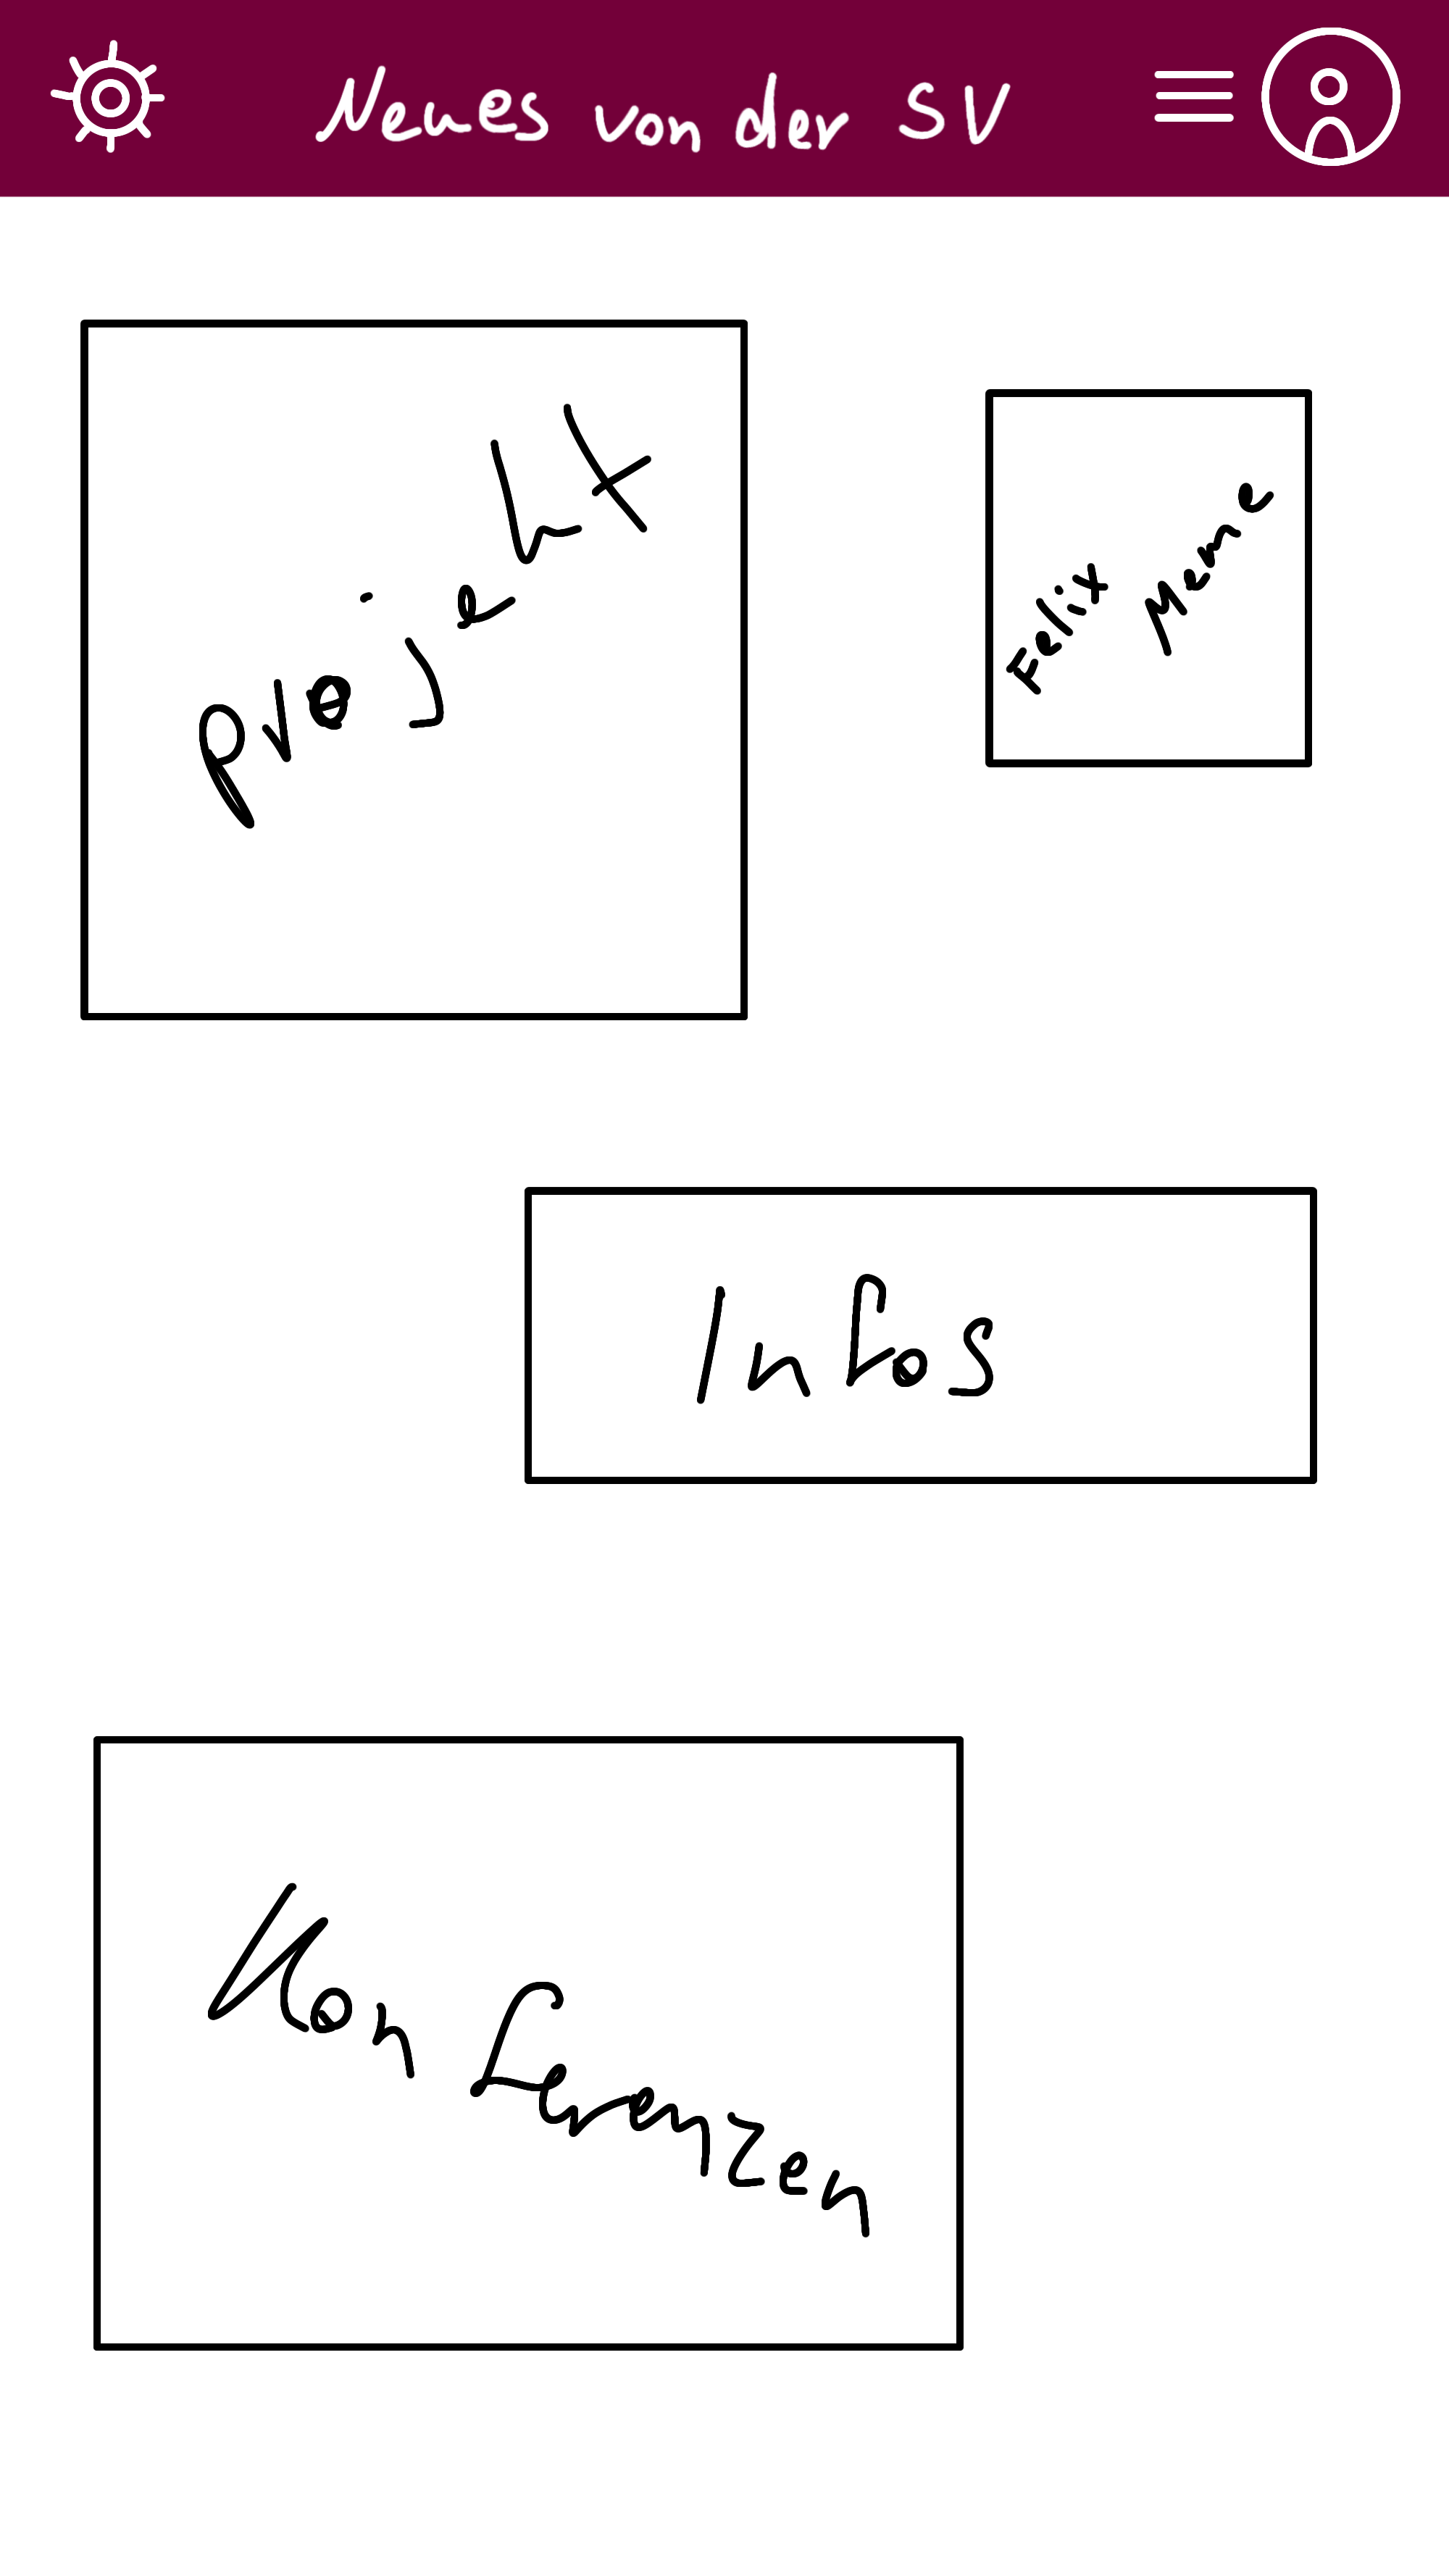 Neues von der SV
Projekt
Felix Meme
Infos
Konferenzen